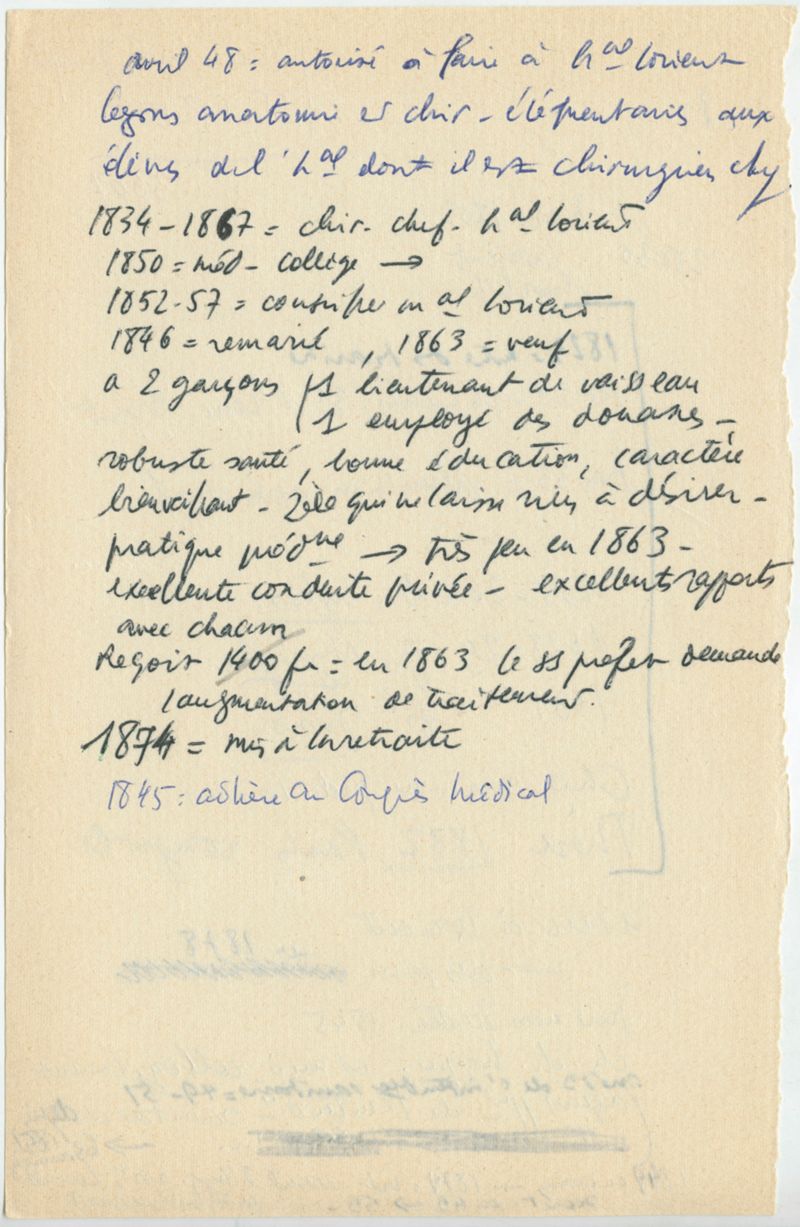 avril 48 = autorisé à faire à h^al Lorient
leçons anatomie et chir - élémentaires aux
élèves de l'h^al dont il est chirurgien chef
1834-1867 = chir. chef - h^al Lorient
1850 = méd - collège →
1852-57 = conseiller m^al Lorient
1846 = remarié , 1863 = veuf
a 2 garçons ( 1 lieutenant de vaisseau
1 employé des douanes -
robuste santé, bonne éducation, caractère
bienveillant - Zèle qui ne laisse rien à désirer -
pratique méd^ne → très peu en 1863 -
excellente conduite privée - excellents rapports
avec chacun
Reçoit 1400 fr = en 1863 le ss préfet demande
l'augmentation de traitement.
1874 = mis à la retraite
1845 : adhère au Congrès Médical